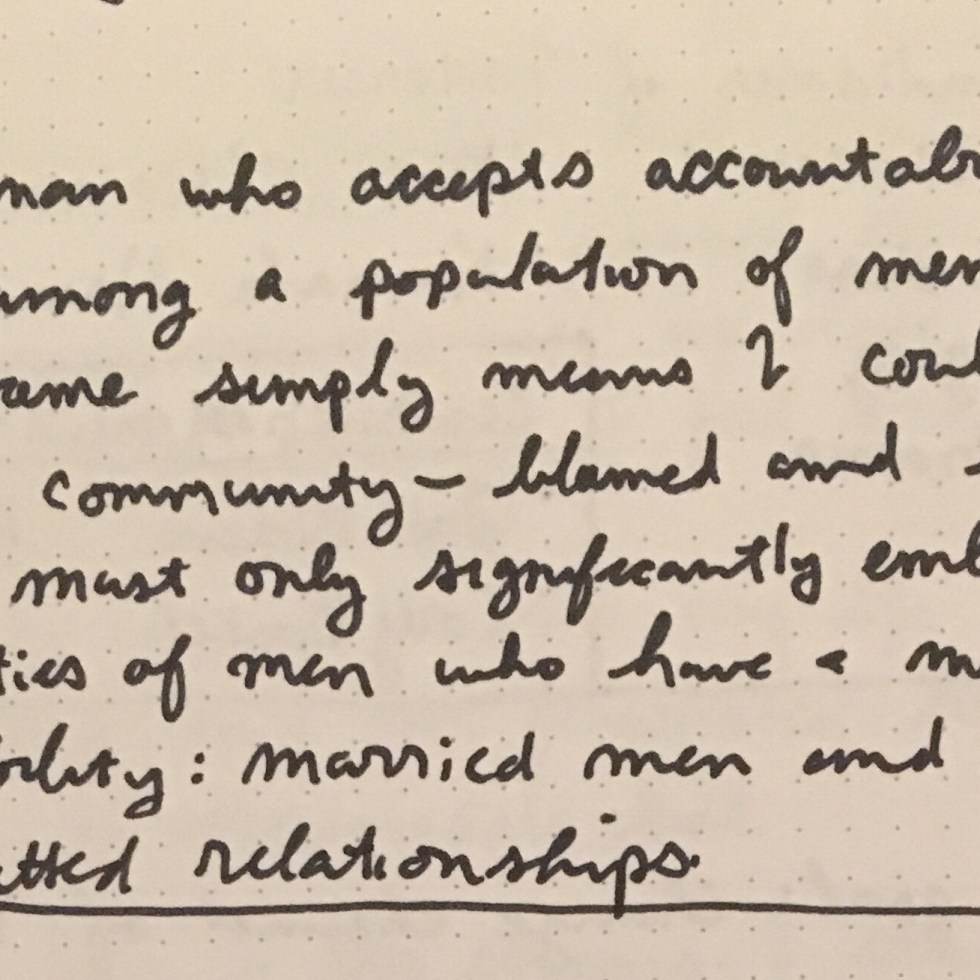 man who accepts accountab
among a population of men
ame simply means I coul
community - blamed and
must only significantly emb
ties of men who have a m
bility: married men and
itted relationships.